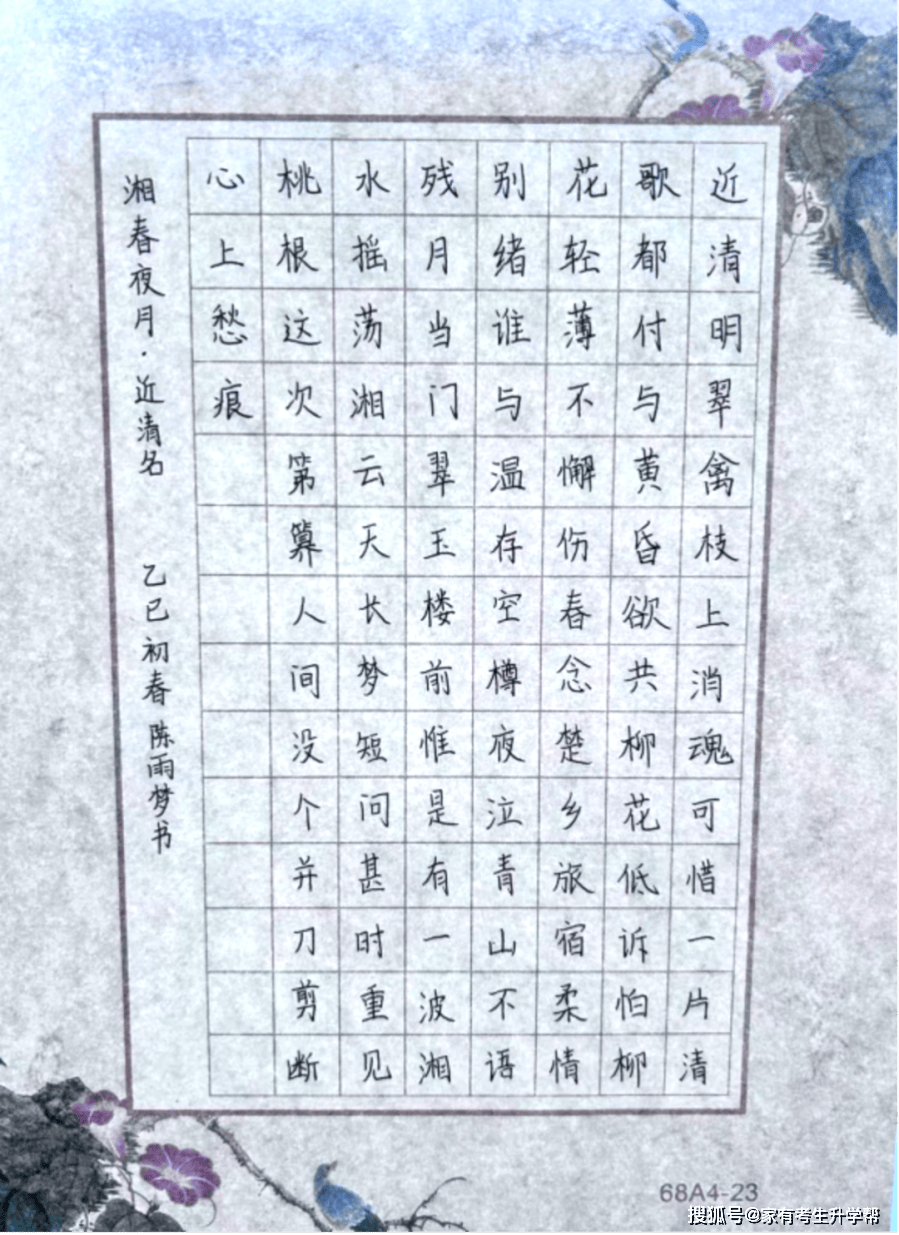 近清明翠禽枝上消魂可惜一片清
歌都付与黄昏欲共柳花低诉怕柳
花轻薄不懈伤春念楚乡旅宿柔情
别绪谁与温存空樽夜泣青山不语
残月当门翠玉楼前惟是有一波湘
水摇荡湘云天长梦短问甚时重见
桃根这次第算人间没个并刀剪断
心上愁痕
湘春夜月·近清名
乙巳初春 陈雨梦书
68A4-23
搜狐号@家有考生升学帮